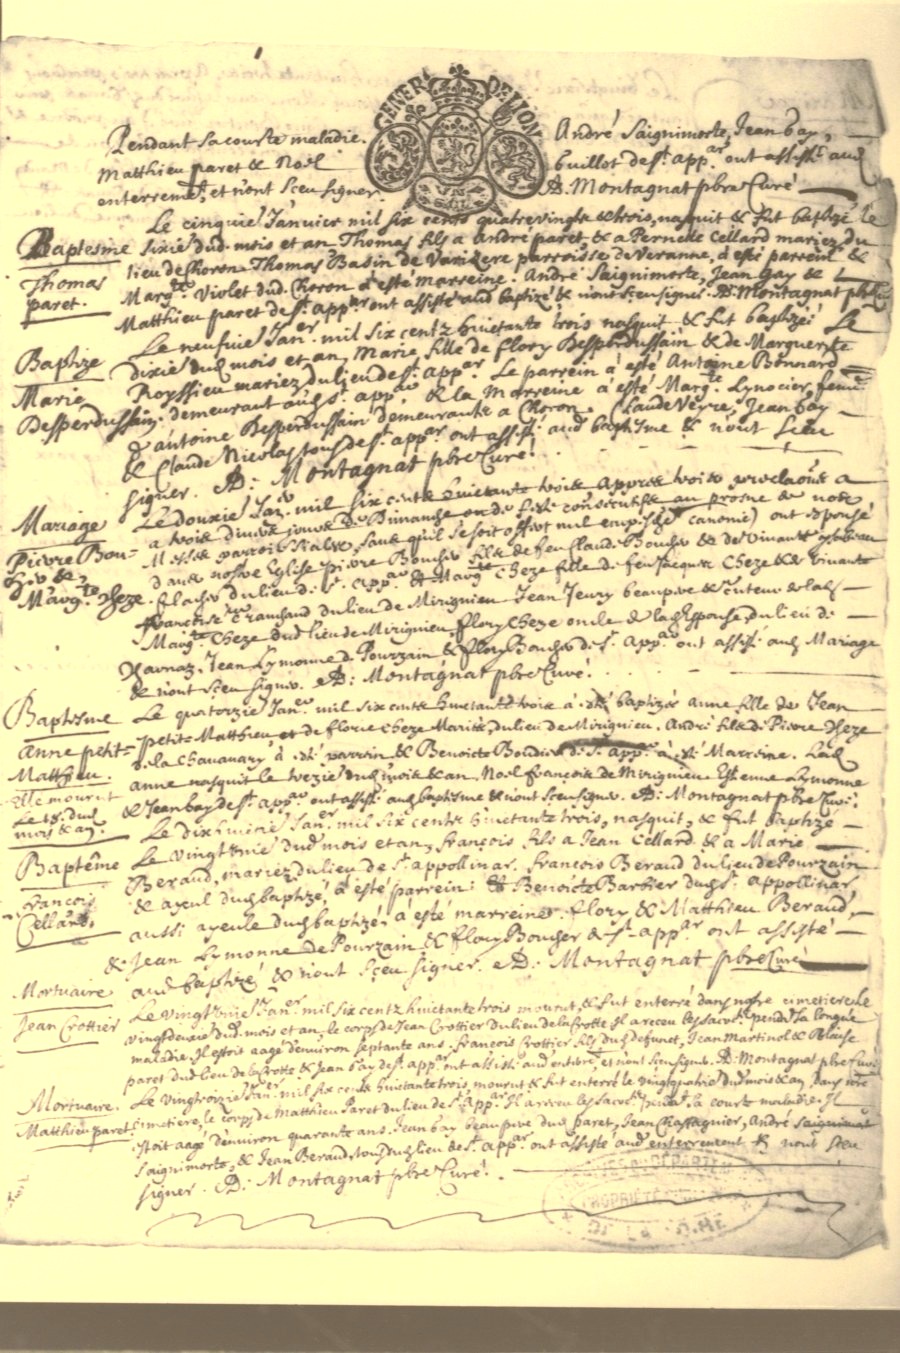 GENER. DE LION
UN SOL
Pendant sa courte maladie. André Saignimorte, Jean Gay,
Matthieu paret & Noël Guillot de St. appar. ont assisté aud
enterremt, et n'ont sceu signer. D. Montagnat pbre Curé
Le cinquie Janvier mil six cents quatrevingts & trois, nasquit & fut baptizé le
Baptesme sixie dud. mois et an, Thomas fils a André paret & a Pernelle Cellard mariez du
Thomas lieu de Choron. Thomas Basin de parroisse de Veranne, a esté parrein &
paret. Margte Violet dud. Choron a esté marreine. André Saignimorte, Jean Gay &
Matthieu paret de St. appar ont assisté aud baptizé & n'ont sceu signer. D. Montagnat pbre Curé
Le neufuie Janer. mil six centz huictante trois nasquit & fut baptizée le
Baptize dixie dud mois et an, Marie fille de flory Desperdussain & de Marguerite
Marie Royssieu mariez du lieu de St. appar Le parrein a esté Antoine Bonnard
Desperdussain. demeurant aud St. appar & la marreine a esté Margte Lynocier, femme
d'antoine Desperdussain demeurante a Choron. Claude Veyre, Jean Gay
& Claude Nicolas tous de St. appar ont assisté aud baptisme & n'ont sceu
signer. D: Montagnat pbre Curé.
Mariage Le douzie Janer mil six cents huictante trois Apprez trois proclaõns a
a trois divers jours de Dimanche ou de feste consecutifs au prosne de notre
Pierre Bou- Messe parroissialle, sans qu'il se soit offert nul empesche canonic) ont esponsé
cher & dans nostre Eglise Pierre Boucher fils de feu Claude Boucher & de vivante
Margte Cheze. du lieu de St. appar & Margte Cheze fille de feu Jacques Cheze & de vivante
francoise Cramhaud du lieu de Mirignieu Jean Jeury beaupere & de lad
Margte Cheze dud lieu de Mirignieu flory Cheze oncle de lad Esponse, du lieu de
Jean Lymonne de Pourzain & flory Boucher de St. appar ont assisté aud Mariage
& n'ont sceu signer. D: Montagnat pbre Curé.
Baptisme Le quatorzie Janer mil six cents huictante trois a esté baptizée anne fille de Jean
anne petit= petit-Matthieu et de florie Cheze Mariez, du lieu de Mirignieu. André fils de Pierre Cheze
Matthieu. de la Chavanary a esté parrein & Benoicte Bondier de St. appar a esté Marreine. Lad
Elle mourut anne nasquit le trezie dud mois & an, Noel françois de Mirignieu Estienne Lymonne
Le 18. dud & Jean Gay de St. appar ont assisté aud baptisme & n'ont sceu signer. D: Montagnat pbre Curé.
mois & an. Le dixhuictie Janer. mil six cents huictante trois, nasquit, & fut baptizé
Baptême Le vingtunie dud mois et an, françois fils a Jean Cellard & a Marie
françois Beraud, mariez du lieu de St. appollinar. françois Beraud du lieu de Pourzain
Cellard. & ayeul dud baptizé, a esté parrein: & Benoicte Barbier dud St. appollinar
aussi ayeule dud baptizé, a esté marreine. flory & Matthieu Beraud,
& Jean Lymonne de Pourzain & flory Boucher de St. appar ont assisté
aud baptizé & n'ont sceu signer. D: Montagnat pbre Curé
Mortuaire Le vingtunie Janer. mil six centz huictante trois mourut, & fut enterré dans nostre cimetiere le
Jean Crottier vingtdeuxie dud. mois et an, le corps de Jean Crottier du lieu de la frotte Il a receu les sacts. pendt sa longue
maladie. Il estoit aagé d'environ septante ans. françois Crottier fils dud defunct, Jean Martinol & Blaise
paret dud lieu de la frotte & Jean Gay de St. appar ont assisté aud enterremt, et n'ont sceu signer. D: Montagnat pbre Curé
Mortuaire. Le vingttroizie Janer. mil six cents huictante trois, mourut & fut enterré le vingtquatrie dud mois & an, dans nostre
Matthieu paret. cimetiere, le corps de Matthieu Paret du lieu de St. appar Il a receu les sacts pendt sa courte maladie. Il
estoit aagé d'environ quarante ans. Jean Gay beaupere dud paret, Jean Chastagnier, André Saignimort
Saignimorte, & Jean Beraud, tous dud lieu de St. appar ont assisté aud enterrement & n'ont sceu
signer. D: Montagnat pbre Curé.
PROPRIÉTÉ